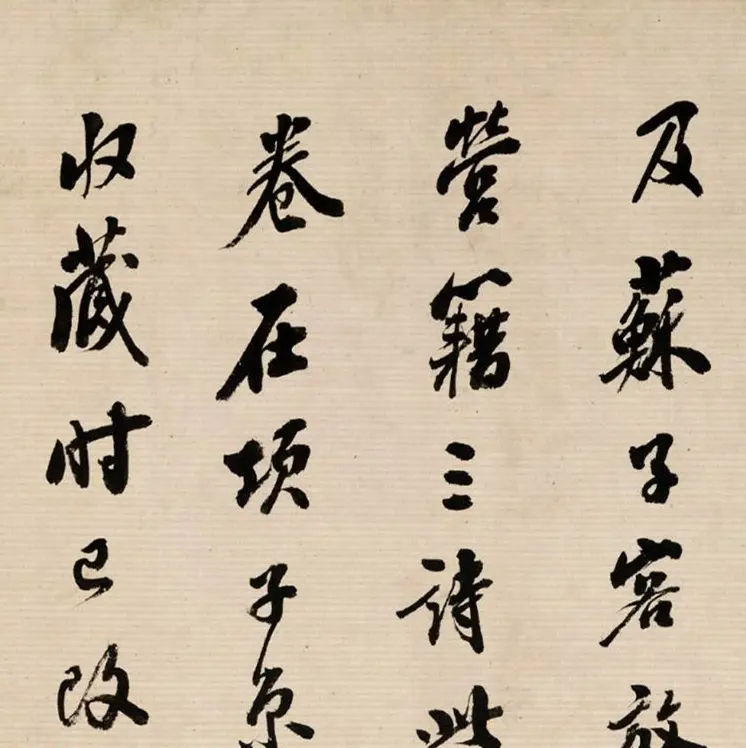 及蘇子容放
營籍三詩此
卷在項子京
收藏时已改